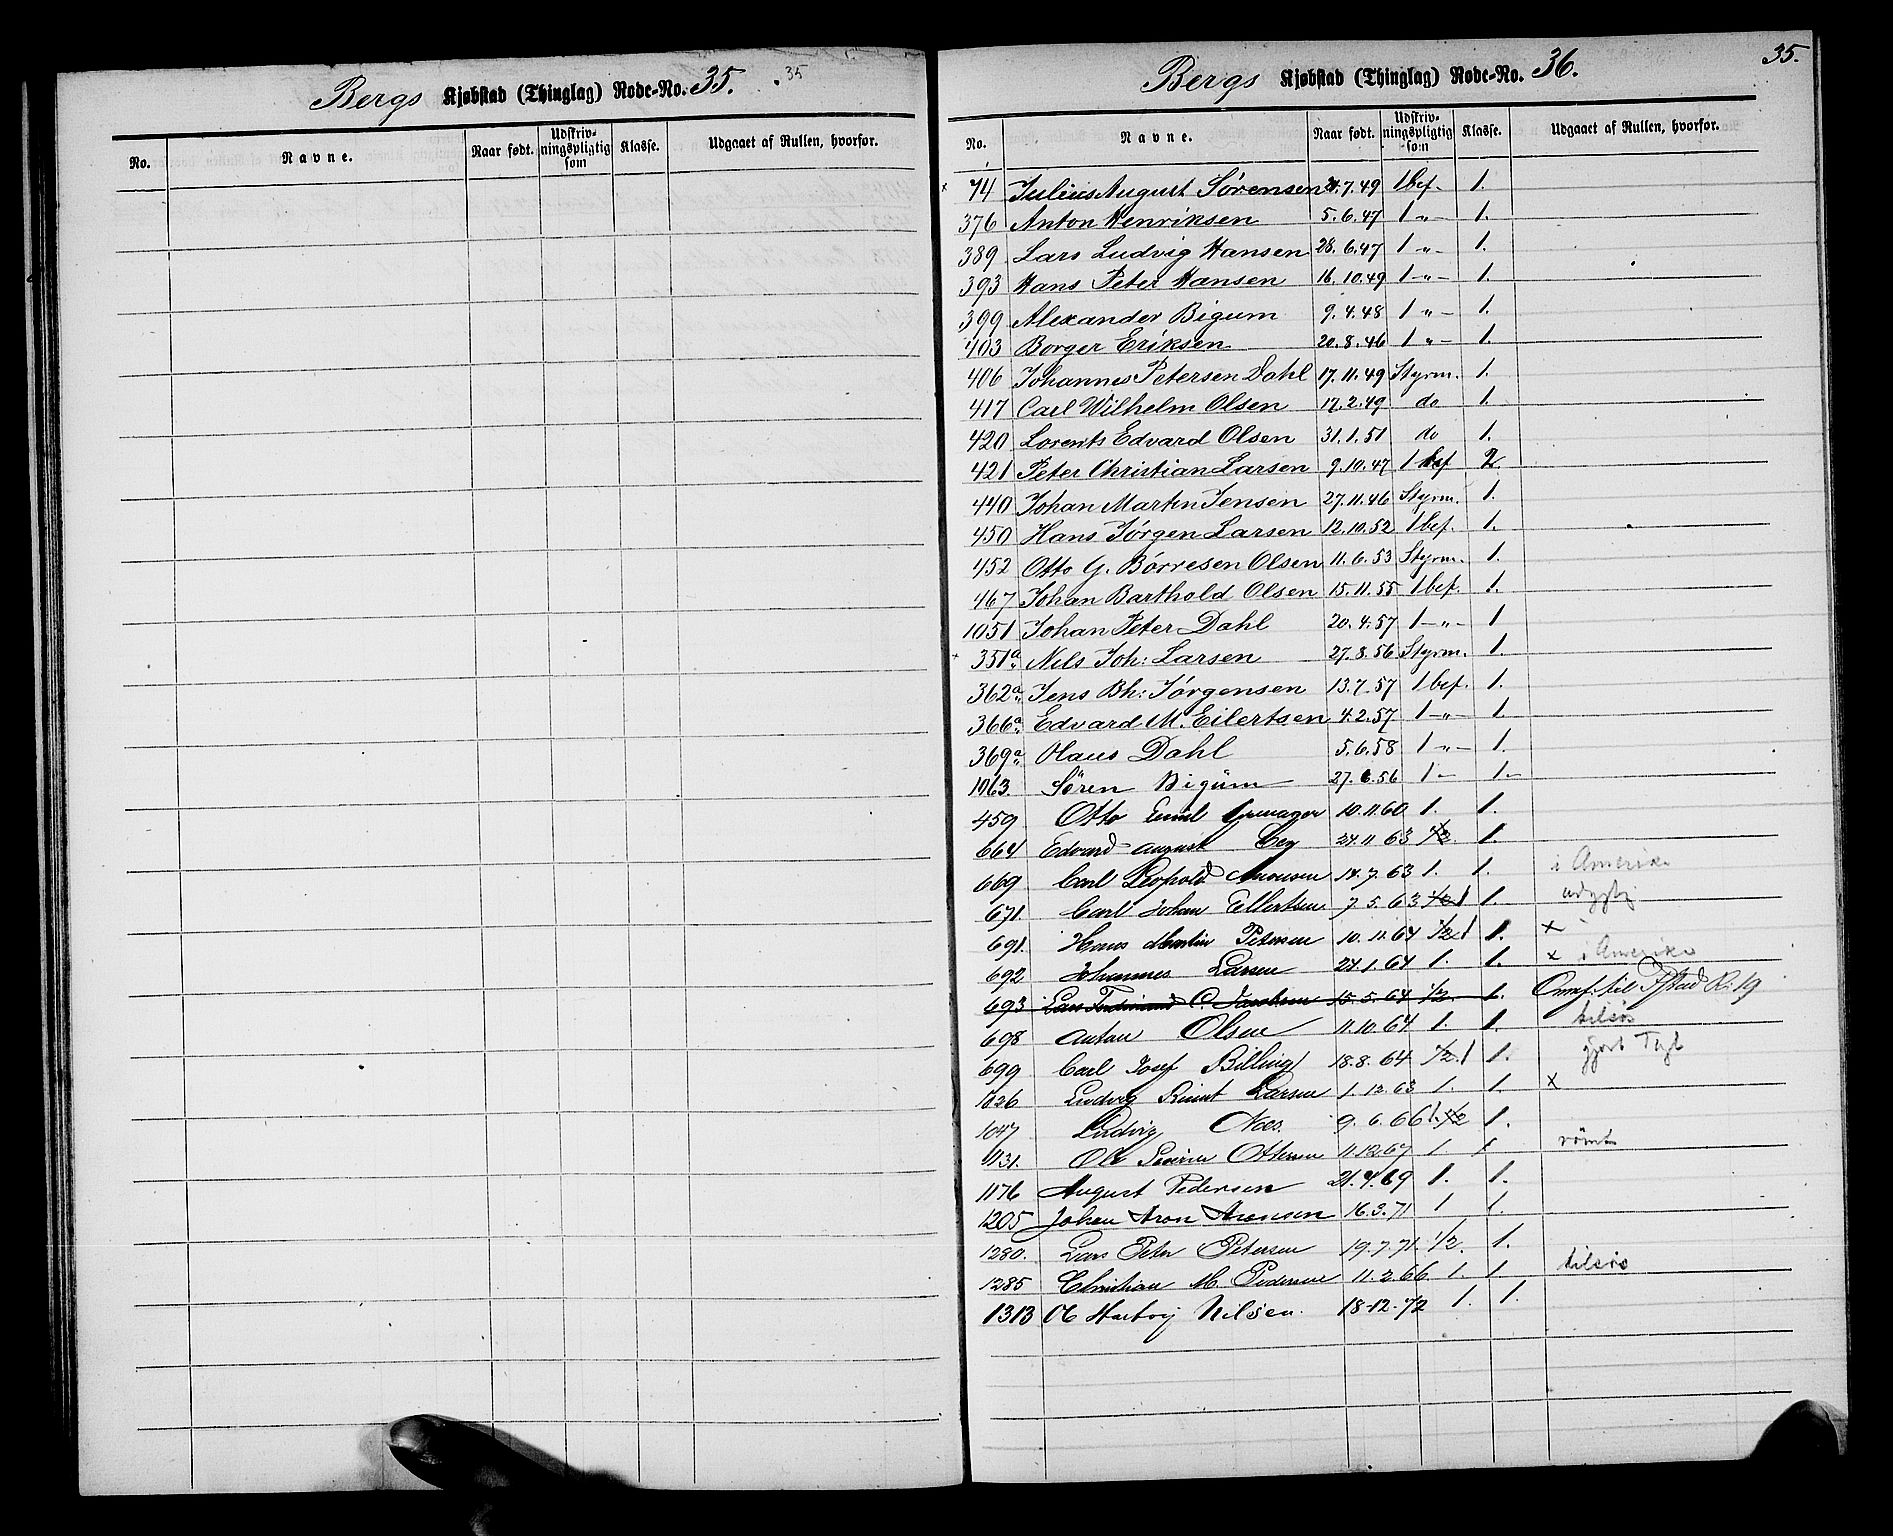 Bergs Kjøbstad (Thinglag) Rode-No. 35. 35
No. Navne. Naar født. Udskriv-ningspligtig som Klasse. Udgaaet af Rullen, hvorfor.
35.
Bergs Kjøbstad (Thinglag) Rode-No. 36.
No. Navne. Naar født. Udskriv-ningspligtig som Klasse. Udgaaet af Rullen, hvorfor.
x 74 Julius August Sørensen .7.49 1 bef. 1.
376 Anton Henriksen 5.6.47 1 " - 1.
389 Lars Ludvig Hansen 28.6.47 1 " - 1.
393 Hans Peter Hansen 16.10.49 1 - " - 1.
399 Alexander Bigum 9.4.48 1 " - 1.
403 Borger Eriksen 20.8.46 1 " - 1.
406 Johannes Petersen Dahl 17.11.49 Styrm. 1.
417 Carl Wilhelm Olsen 17.2.49 do 1.
420 Lorents Edvard Olsen 31.1.51 do 1.
421 Peter Christian Larsen 9.10.47 1 bef 2.
440 Johan Martin Jensen 27.11.46 Styrm. 1.
450 Hans Jørgen Larsen 12.10.52 1 bef. 1.
452 Otto G. Børresen Olsen 11.6.53 Styrm. 1.
467 Johan Barthold Olsen 15.11.55 1 bef. 1.
1051 Johan Peter Dahl 20.4.57 1 - " - 1
x 351a. Nils Joh: Larsen 27.8.56 Styrm. 1.
362a. Jens Bh: Jørgensen 13.7.57 1 bef. 1.
366a. Edvard M. Eilertsen 4.2.57 1 - " - 1.
369a. Olaus Dahl 5.6.58 1 " - 1.
1063. Sören Bigüm 27.6.56 1 - 1. -
459 Otto Emil 10.11.60 1. 1.
664 Edvard August 27.11 63 1/2. 1.
669 Carl Leopold 14.7.63 1. 1. i Amerika
671. Carl Johan Ellertsen 7 5.63 1/2 1 1.
691. Hans Martin Petersen 10.11.64 1/2 1 1. x
692 Johannes Larsen 27.1.64 1. 1. x i Amerika
693 Lars Ferdinand C. Jacobsen 15.5.64 1/2. 1. til R. 19
698 Anton Olsen 11.10.64 1. 1. tilsøs
699 Carl Josef Billing 18.8.64 1/2. 1 1. gjort
1026 Ludvig Larsen 1.12.63 1. 1. x
1047 Ludvig Næs. 9.6.66 1. 1/2 1.
1131. Ole Ottersen 11.12.67 1. 1 römt
1176 August Pedersen 21.4.69 1. 1.
1205 Johan Aron Arensen 16.3.71 1 1.
1280. Lars Peter Petersen 19.7.71. 1/2. 1.
1285 Christian M. Pedersen 11.2.66 1. 1 tilsøs
1313 Ol Hartvig Nilsen. 18-12.72 1. 1.